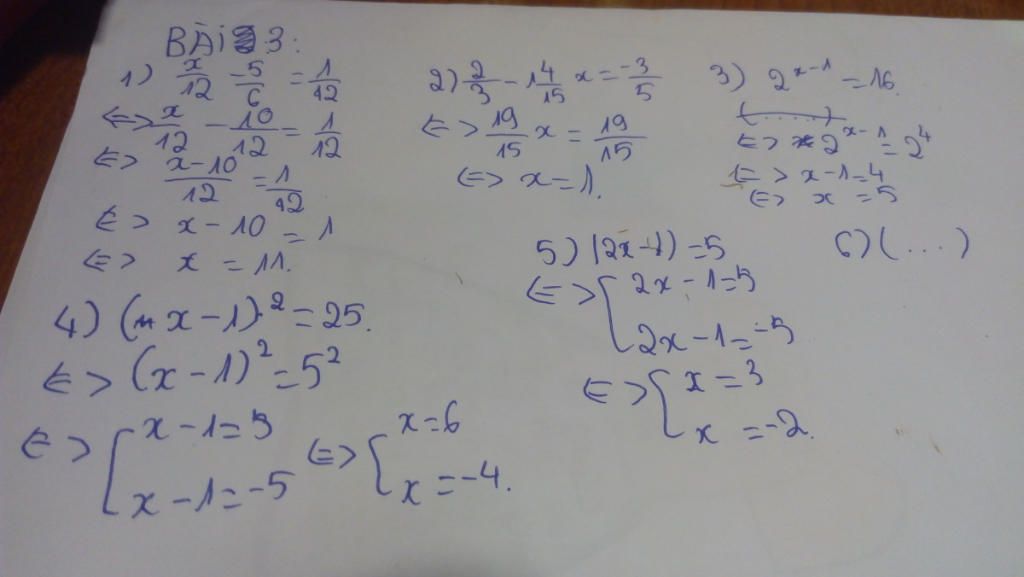 BÀI 3:
1) x/12 - 5/6 = 1/12
<=> x/12 - 10/12 = 1/12
<=> x-10/12 = 1/12
<=> x - 10 = 1
<=> x = 11.
2) 2/3 - 1 4/15 x = -3/5
<=> 19/15 x = 19/15
<=> x = 1.
3) 2^x-1 = 16.
<=> 2^x-1 = 2^4
<=> x-1=4
<=> x = 5
4) (x-1)^2 = 25.
<=> (x-1)^2 = 5^2
<=> [ x-1=5
x-1=-5
<=> [ x=6
x=-4.
5) |2x-1|=5
<=> [ 2x-1=5
2x-1=-5
<=> [ x=3
x=-2.
6) (...)